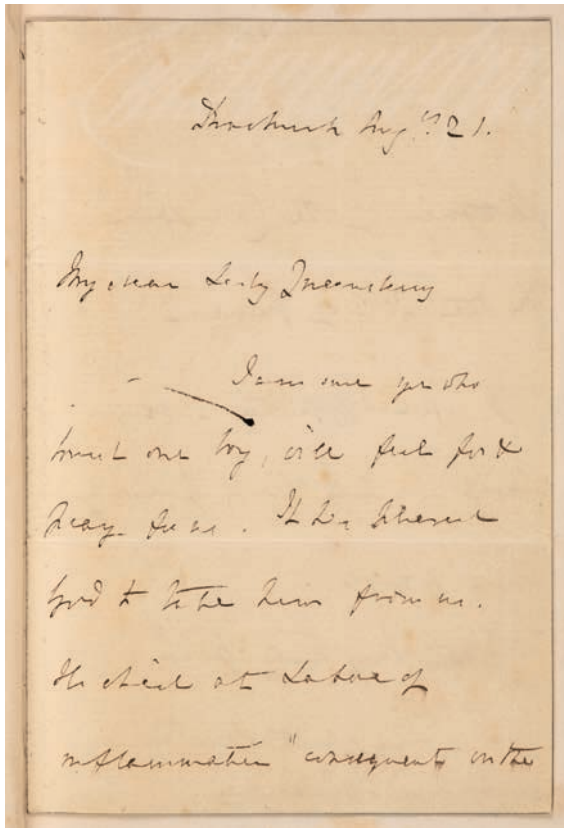 Augst 21.
My dear Lady Queensbury
I am sure you who
loved our boy, will feel for &
pray for us. It has pleased
God to take him from us.
He died at Lahore of
inflammation "consequent on the